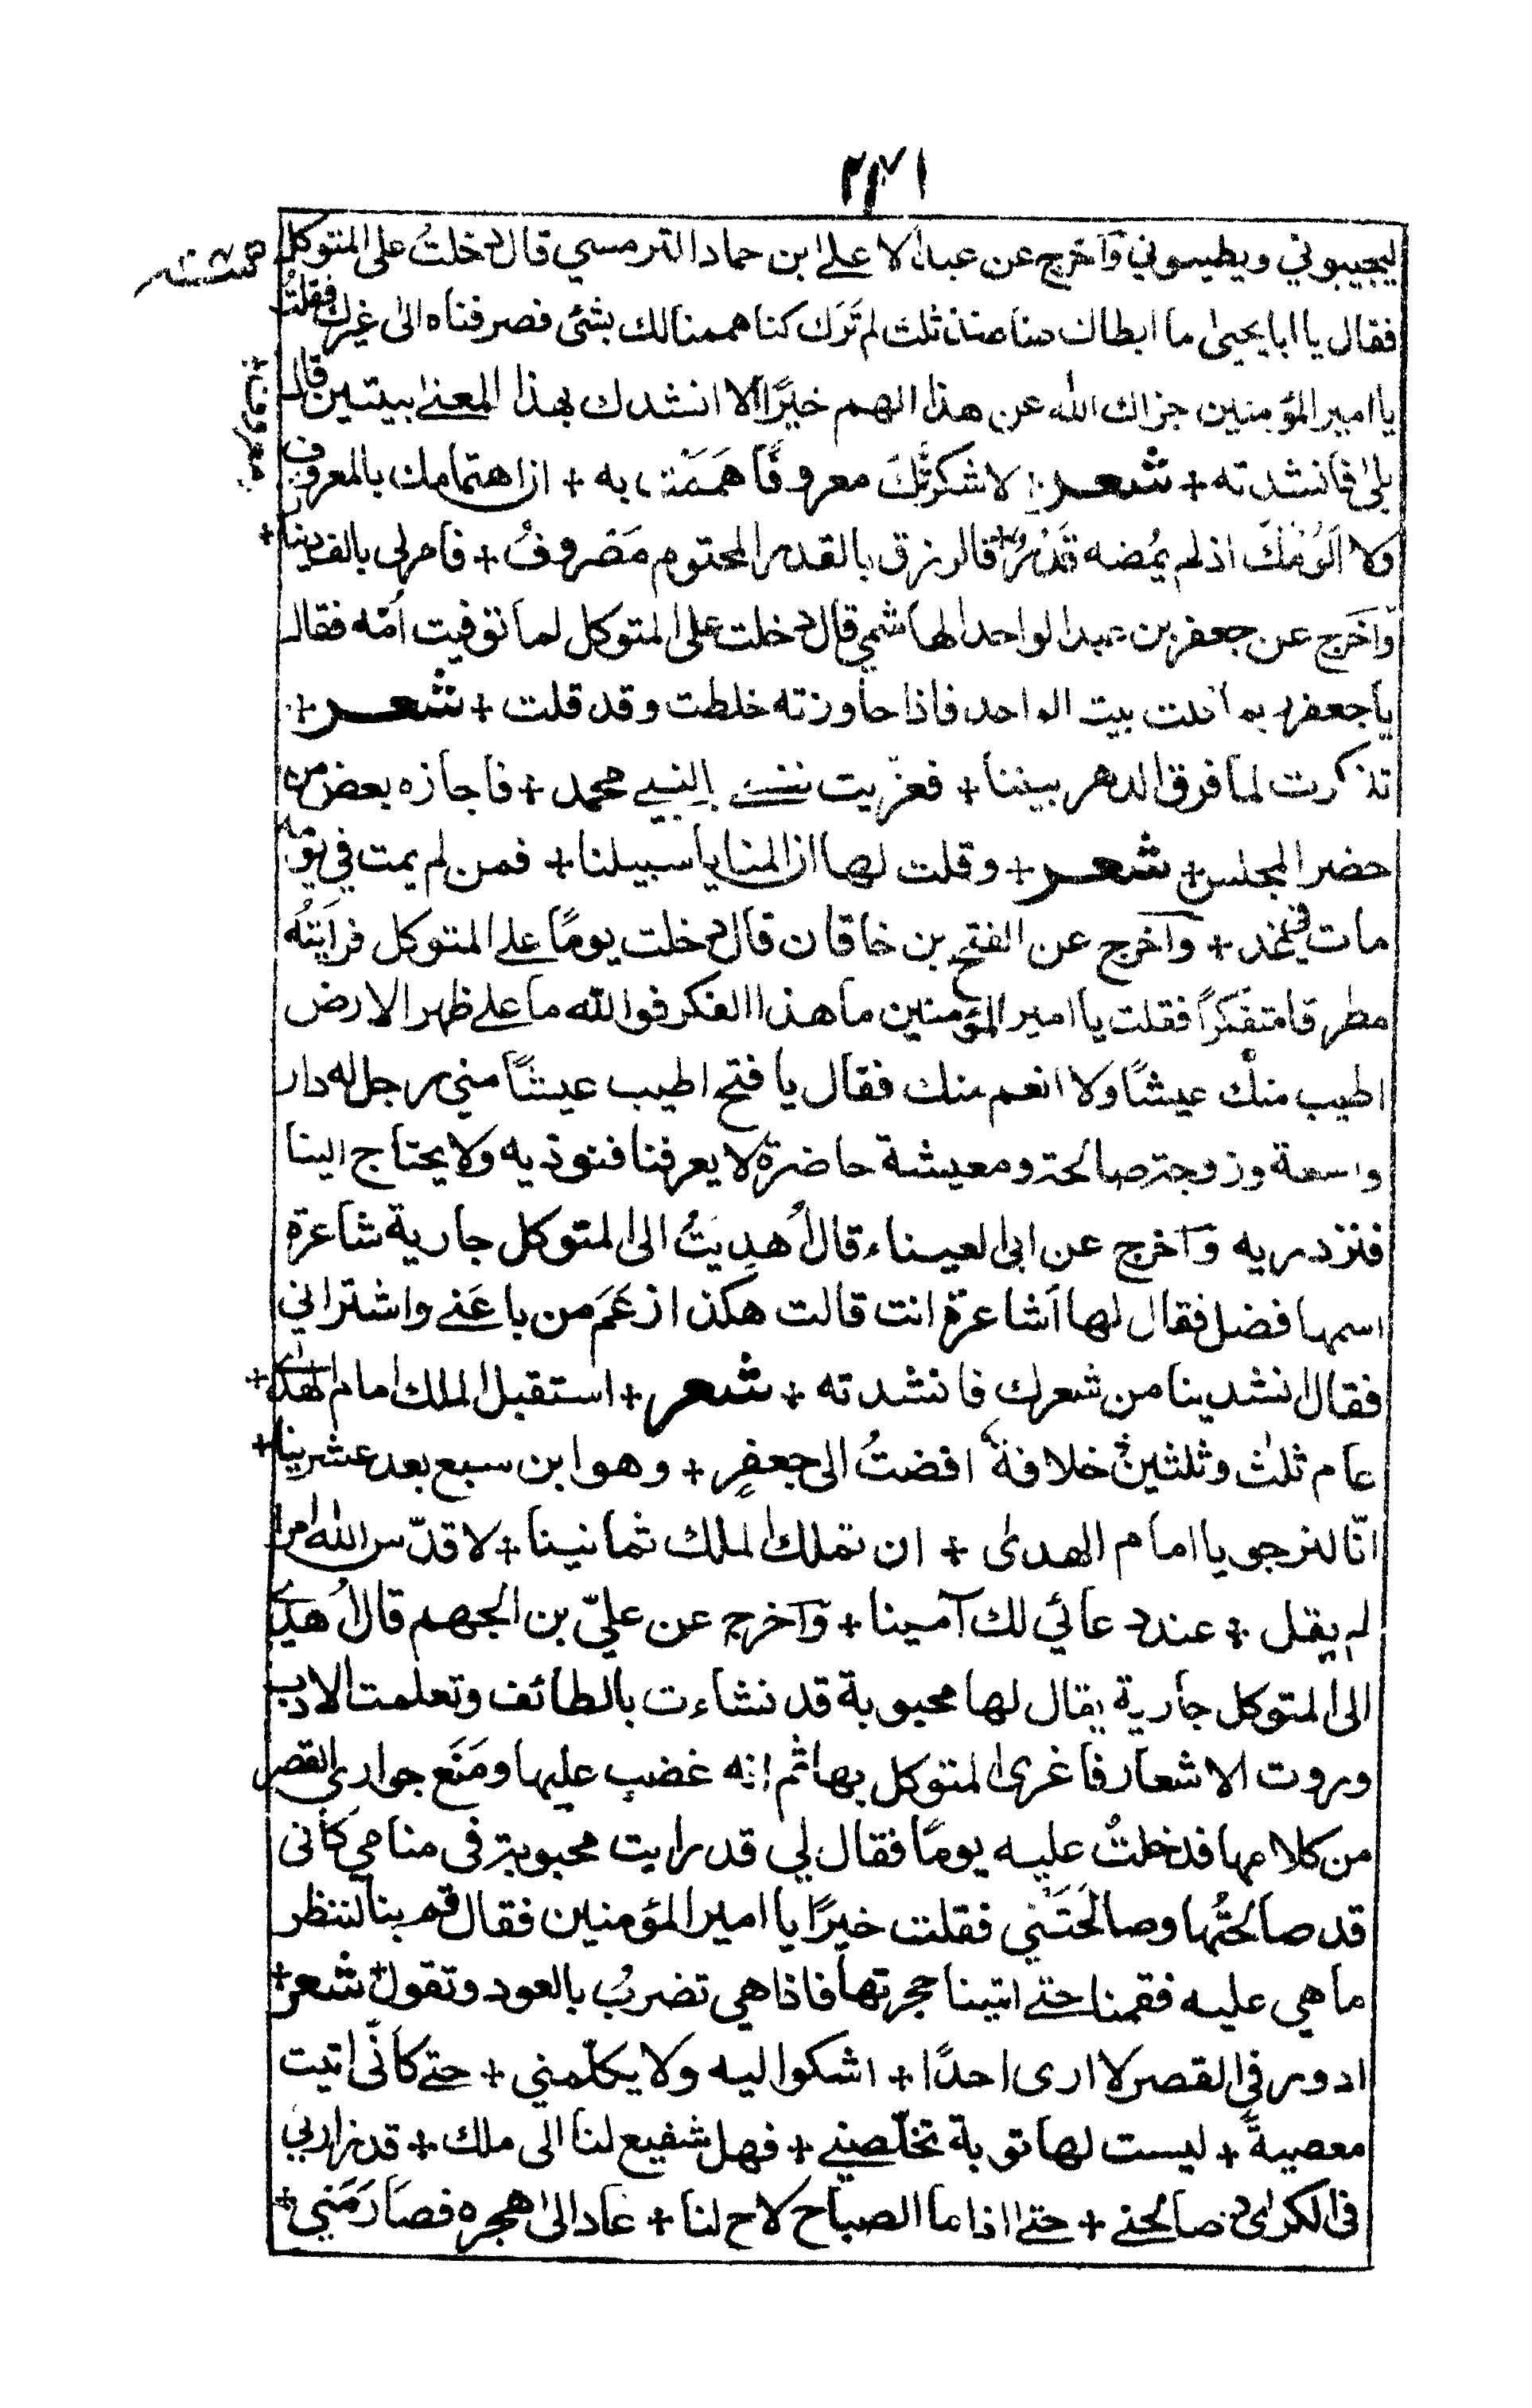 ٢٣١
ليجيبوني ويطيعوني وَآخرج عن عبد الاعلے ابن حماد الترمسي قال دخلتُ علی المتوكل
فقال يا ابا يحيیٰ ما ابطاك عنا منذ ثلث لم نَرَك كنا هممنا لك بشئ فصرفناه الیٰ غيرك فقلتُ
يا امير المؤمنين جزاك الله عن هذا الهم خيرًا الا انشدك بهذا المعنے بيتين قال
بلیٰ فانشدته + شعر لاشكرنّكَ معروفًا هَمَمْتَ به + ان اهتمامك بالمعروف معروف
ولا الُوْمُكَ اذ لم يُمضه قَدَرٌ + فالرزق بالقدر المحتوم مَصْروفُ + فامر لی بالف دينار +
وَآخَرج عن جعفر بن عبد الواحد الهاشمي قال دخلت علی المتوكل لما توفيت اُمّه فقال
يا جعفر ربما قلت بيت الواحد فاذا جاوزته خلطت وقد قلت + شعر +
تذكرت لما فرق الدهر بيننا + فعزّيت نفسے بالنبے محمد + فاجازه بعض من
حضر المجلس + شعر + وقلت لها ان المنايا سبيلنا + فمن لم يمت في يومه
مات في غد + وآخرج عن الفتح بن خاقان قال دخلت يومًا علے المتوكل فرايتُه
مطرقا متفكرًا فقلت يا امير المؤمنين ما هذا الفكر فوالله ما علے ظهر الارض
اطيب منك عيشًا ولا انعم منك فقال يا فتح اطيب عيشًا مني رجل له دار
واسعة وزوجة صالحة ومعيشة حاضرة لا يعرفنا فنوذيه ولا يحتاج الينا
فنزدريه وَآخرج عن ابی العيناء قال اُهدِيَتُ الی المتوكل جارية شاعرة
اسمها فضل فقال لها اَشاعرة انت قالت هكذا زعَمَ من باعَنے واشتراني
فقال انشدينا من شعرك فانشدته + شعر + استقبل الملك امام الهدیٰ +
عام ثلث وثلثين خلافة افضتُ الی جعفرٍ + وهو ابن سبع بعد عشرينا +
انّا لنرجو يا امام الهدیٰ + ان تملك الملك ثمانينا + لا قدّس الله امرا
لم يقل + عند دعائي لك آمينا + وَآخرج عن عليّ بن الجهم قال اُهدي
الی المتوكل جارية يقال لها محبوبة قد نشاءت بالطائف وتعلمت الادب
وروت الاشعار فاغری المتوكل بها ثم انه غضب عليها ومَنَع جواری القصر
من كلامها فدخلتُ عليه يومًا فقال لي قد رايت محبوبة فی منامي كأنی
قد صالحتُها وصالحَتَني فقلت خيرًا يا امير المؤمنين فقال قم بنا لننظر
ما هي عليه فقمنا حتے اتينا حجرتها فاذا هي تضربُ بالعود وتقول شعر +
ادور فی القصر لا اری احدًا + اشكوا ليه ولا يكلّمني + حتے كأنّی اتيت
معصيةً + ليست لها توبة تخلّصنے + فهل شفيع لنا الی ملك + قد زارنی
فی الكریٰ وصالحنے + حتے اذا ما الصباح لاح لنا + عاد الیٰ هجره فصَارَمَني +